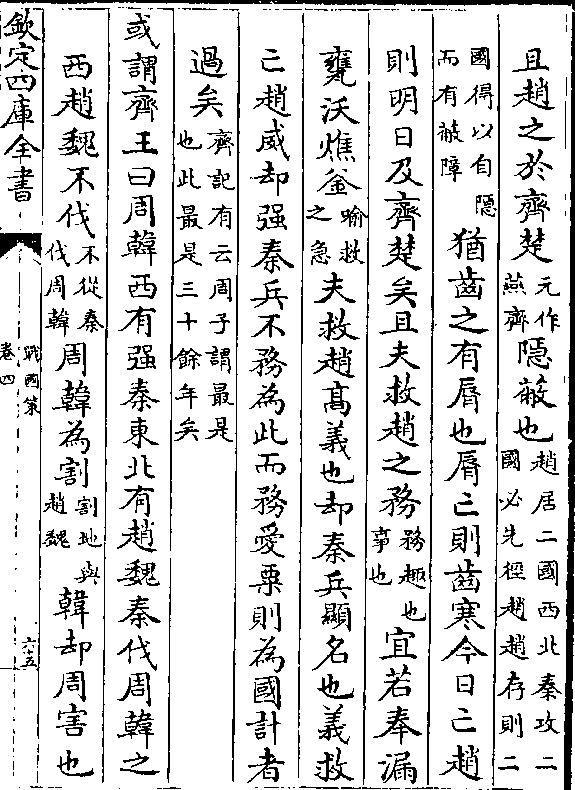 且趙之於齊楚元作燕齊隠蔽也趙居二國西北秦攻二國必先徑趙趙存則二
國得以自隠而有蔽障猶齒之有脣也脣亡則齒寒今日亡趙
則明日及齊楚矣且夫救趙之務務趣也事也宜若奉漏
甕沃燋釜喻救之急夫救趙髙義也却秦兵顯名也義救
亡趙威却强秦兵不務為此而務愛粟則為國計者
過矣齊記有云周子謂最是也此最是三十餘年矣
或謂齊王曰周韓西有强秦東北有趙魏秦伐周韓之
西趙魏不伐不從秦伐周韓周韓為割割地與趙魏韓却周害也
欽定四庫全書
戰國策
卷四
六十五